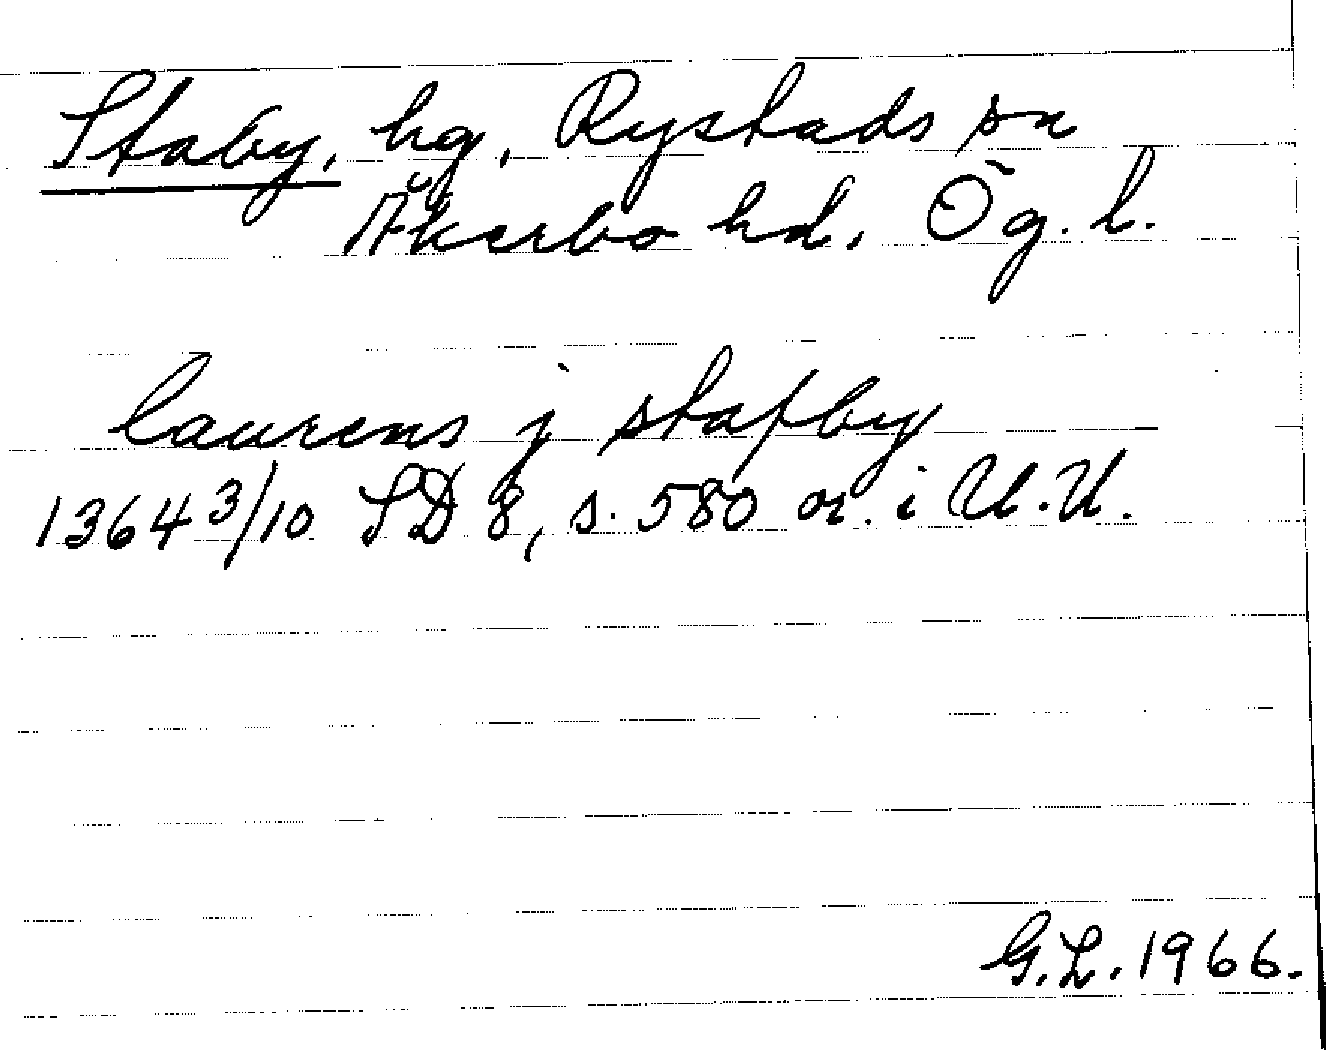 Staby, hg, Rystads sn
Åkerbo hd. Ög. l.
laurens j stafby
1364 3/10 SD 8, s. 580 or. i U.U.
G.L. 1966.